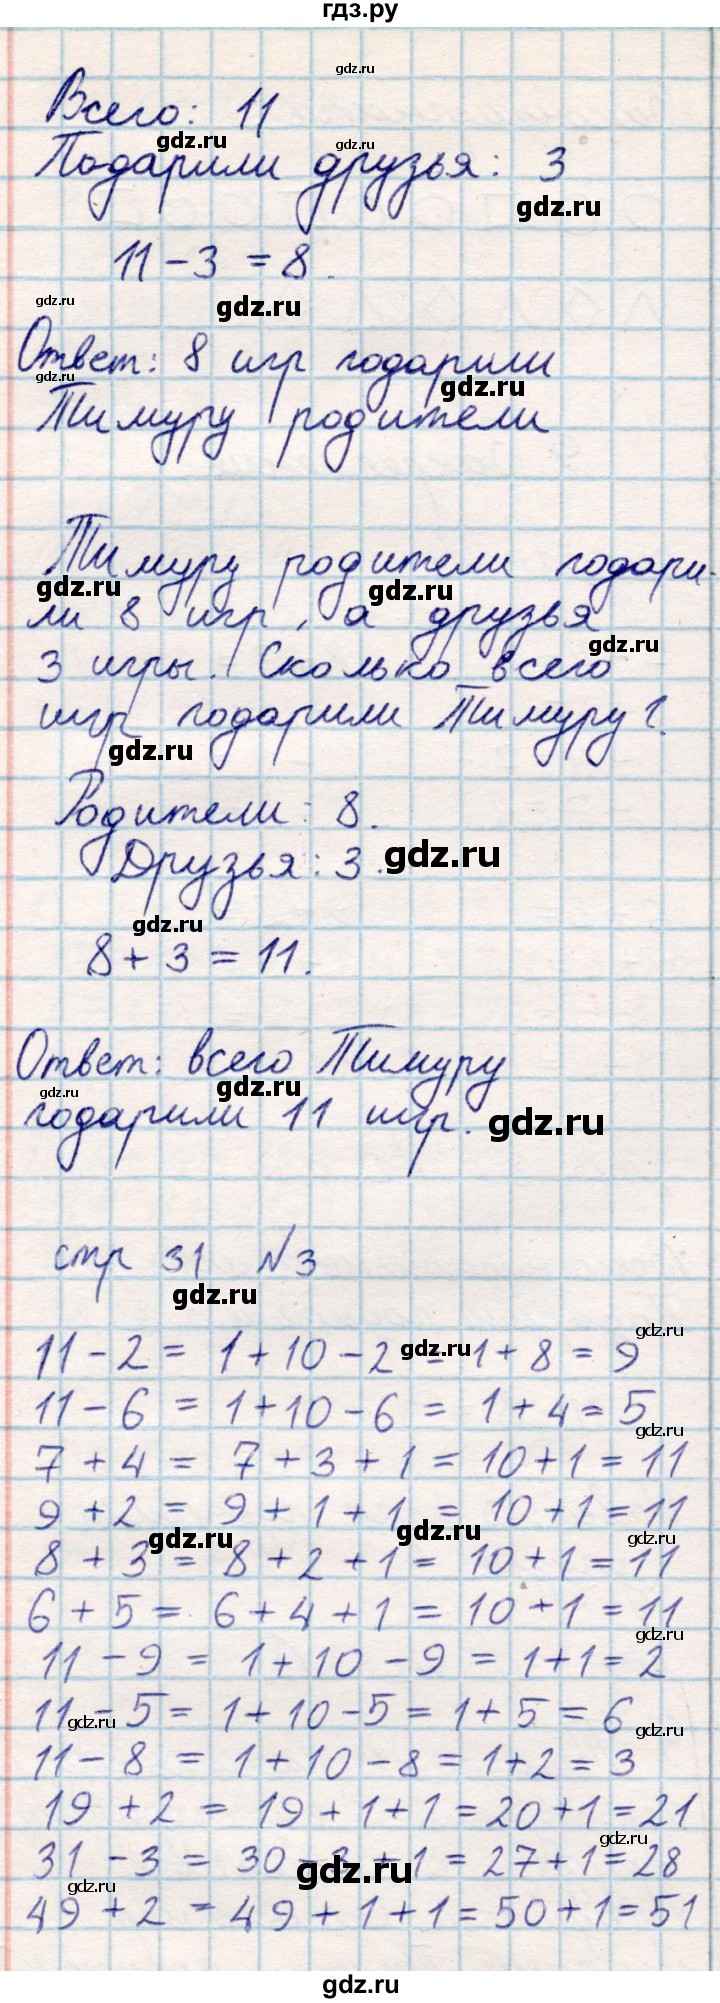 гдз.ру
gdz.ru
Всего: 11
gdz.ru gdz.ru
Подарили друзья: 3
gdz.ru
11 - 3 = 8.
gdz.ru gdz.ru
Ответ: 8 игр подарили
gdz.ru gdz.ru
Тимуру родители
Тимуру родители подари-
gdz.ru gdz.ru
ли 8 игр, а друзья
gdz.ru
3 игры. Сколько всего
игр подарили Тимуру?
gdz.ru
Родители: 8.
Друзья: 3.
gdz.ru
gdz.ru
8 + 3 = 11.
Ответ: всего Тимуру
gdz.ru gdz.ru
подарили 11 игр.
gdz.ru
стр 31 №3
gdz.ru
gdz.ru
11 - 2 = 1 + 10 - 2 = 1 + 8 = 9
gdz.ru
11 - 6 = 1 + 10 - 6 = 1 + 4 = 5
gdz.ru
7 + 4 = 7 + 3 + 1 = 10 + 1 = 11
9 + 2 = 9 + 1 + 1 = 10 + 1 = 11
gdz.ru gdz.ru gdz.ru
8 + 3 = 8 + 2 + 1 = 10 + 1 = 11
6 + 5 = 6 + 4 + 1 = 10 + 1 = 11
gdz.ru
11 - 9 = 1 + 10 - 9 = 1 + 1 = 2
11 - 5 = 1 + 10 - 5 = 1 + 5 = 6
gdz.ru gdz.ru
11 - 8 = 1 + 10 - 8 = 1 + 2 = 3
19 + 2 = 19 + 1 + 1 = 20 + 1 = 21
gdz.ru
31 - 3 = 30 - 3 + 1 = 27 + 1 = 28
gdz.ru gdz.ru
49 + 2 = 49 + 1 + 1 = 50 + 1 = 51
gdz.ru